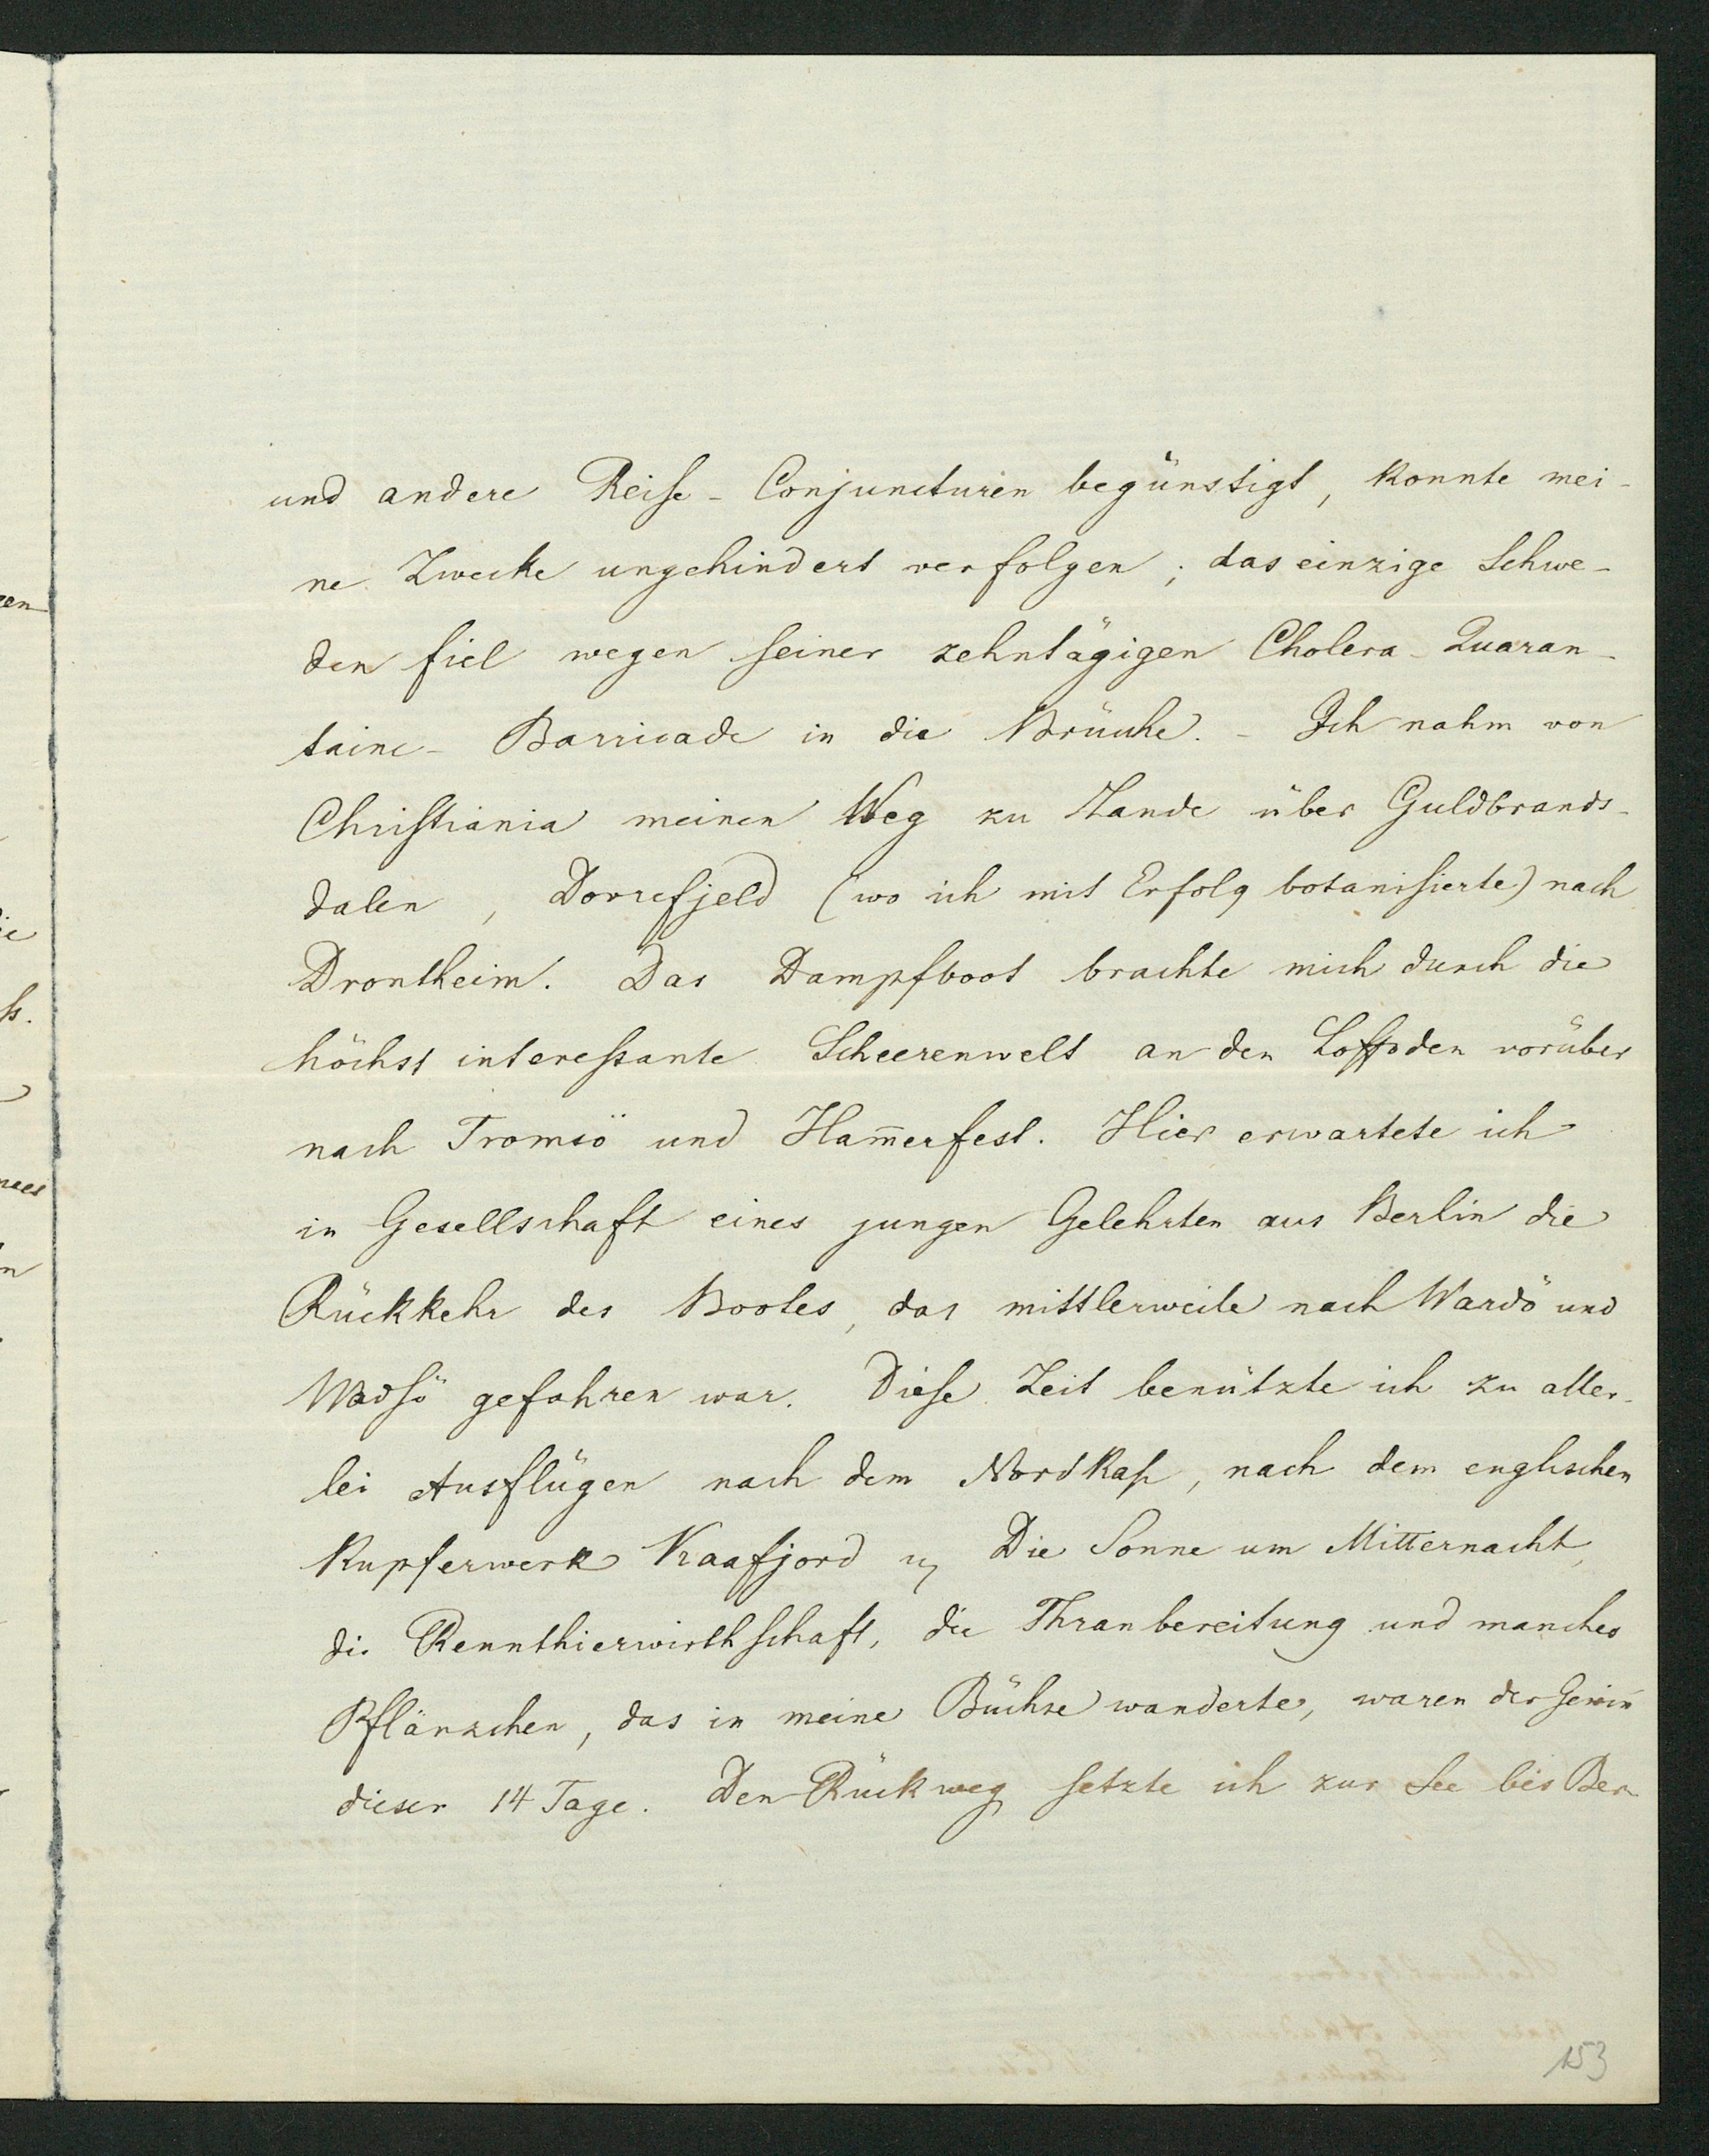 und andere Reise-Conjuncturen begünstigt, konnte mei-
ne Zwecke ungehindert verfolgen; das einzige Schwe-
den fiel wegen seiner zehntägigen Cholera-Quaran-
taine-Barricade in die Brüche. - Ich nahm von
Christiania meinen Weg zu Lande über Guldbrands-
dalen, Dovrefjeld (wo ich mit Erfolg botanisierte) nach
Drontheim. Das Dampfboot brachte mich durch die
höchst interessante Scheerenwelt an den Loffoden vorüber
nach Tromsö und Ham̅erfest. Hier erwartete ich
in Gesellschaft eines jungen Gelehrten aus Berlin die
Rückkehr des Bootes, das mittlerweile nach Wardö und
Wadsö gefahren war. Diese Zeit benützte ich zu aller-
lei Ausflügen nach dem Nordkap, nach dem englischen
Kupferwerk Kaafjord Die Sonne um Mitternacht,
die Rennthierwirthschaft, die Thranbereitung und manches
Pflänzchen, das in meine Büchse wanderte, waren der Gewin̅
dieser 14 Tage. Den Rückweg setzte ich zur See bis Ber-
153